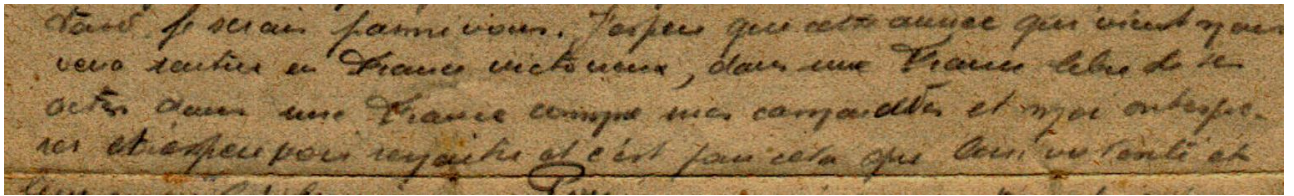 tard je serais parmi vous. J'espere que cette année qui vient nous
verra rentrer en France victorieux, dans une France libre de ses
actes dans une France comme mes camarades et moi ont espé-
rer et espere voir renaitre et c'est pour cela que